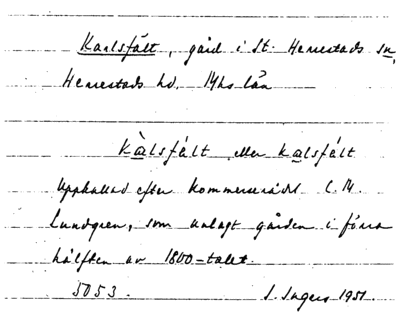 Karlsfält, gård i St. Herrestads sn,
Herrestads hd. Mhs län
Kàlsfált eller kalsfált
Uppkallad efter kommerserådet C. M.
Lundgren, som anlagt gården i förra
hälften av 1800-talet.
5053. I. Ingers 1951.